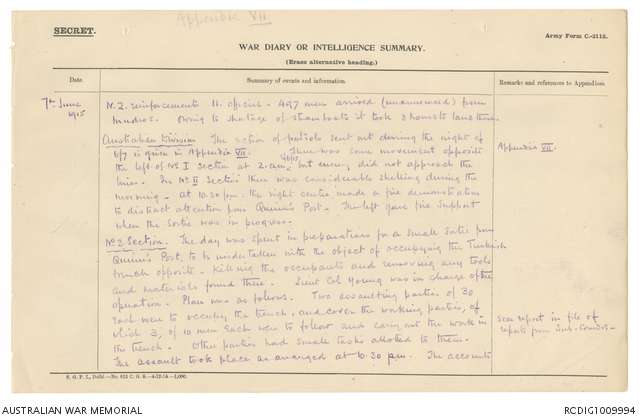 Appendix VII
SECRET.
Army Form C.-2118.
WAR DIARY OR INTELLIGENCE SUMMARY.
(Erase alternative heading.)
Date
Summary of events and information
Remarks and references to Appendices
7th June
1915
N.Z. reinforcements 11. officers - 497 men arrived (unannounced) from
Mudros. Owing to shortage of steamboats it took 3 hours to land them.
Australian Division. The action of patrols sent out during the night of
6/7 is given in Appendix VII. There was some movement opposite
Appendix VII.
the left of No I Section at 2. am, but enemy did not approach the
lines. In No II Section there was considerable shelling during the
morning - At 10.30 pm. the right centre made a fire demonstration
to distract attention from Quinn's Post. The left gave fire support
when the sortie was in progress.
No 3 Section. The day was spent in preparations for a small sortie from
Quinn's Post, to be undertaken with the object of occupying the Turkish
trench opposite - killing the occupants and removing any tools
and materials found there. Lieut Col Young was in charge of the
operation. Plan was as follows. Two assaulting parties of 30
each were to occupy the trench, and cover the working parties, of
which 3, of 10 men each were to follow and carry out the work in
the trench. Other parties had small tasks allotted to them.
The assault took place as arranged at 10.30 pm. The accounts
See report in file of
reports from Sub. Comdrs -
S. G. P. I., Delhi
AUSTRALIAN WAR MEMORIAL
RCDIG1009994